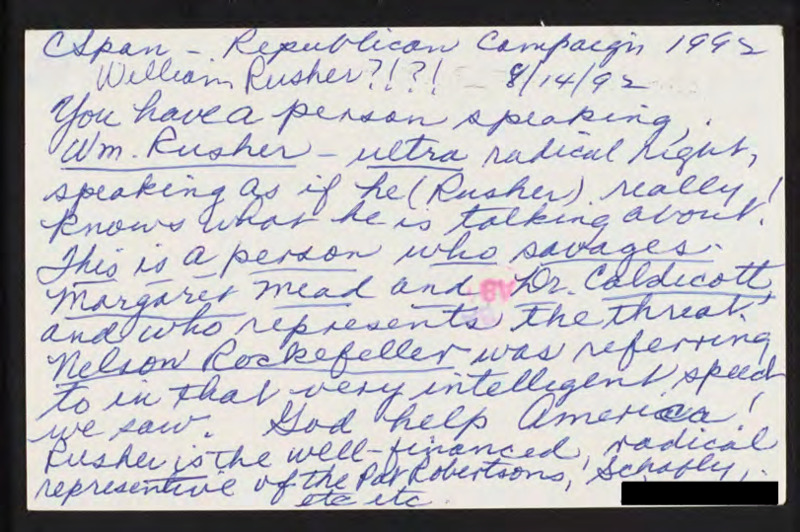 CSpan – Republican Campaign 1992
William Rusher?!?! – 8/14/92
You have a person speaking,
Wm. Rusher – ultra radical right,
speaking as if he (Rusher) really
knows what he is talking about!
This is a person who savages
Margaret Mead and Dr. Caldicott,
and who represents the threat
Nelson Rockefeller was referring
to in that very intelligent speech
we saw. God help America!
Rusher is the well-financed, radical
representive of the Pat Robertsons, Schafly,
etc etc.